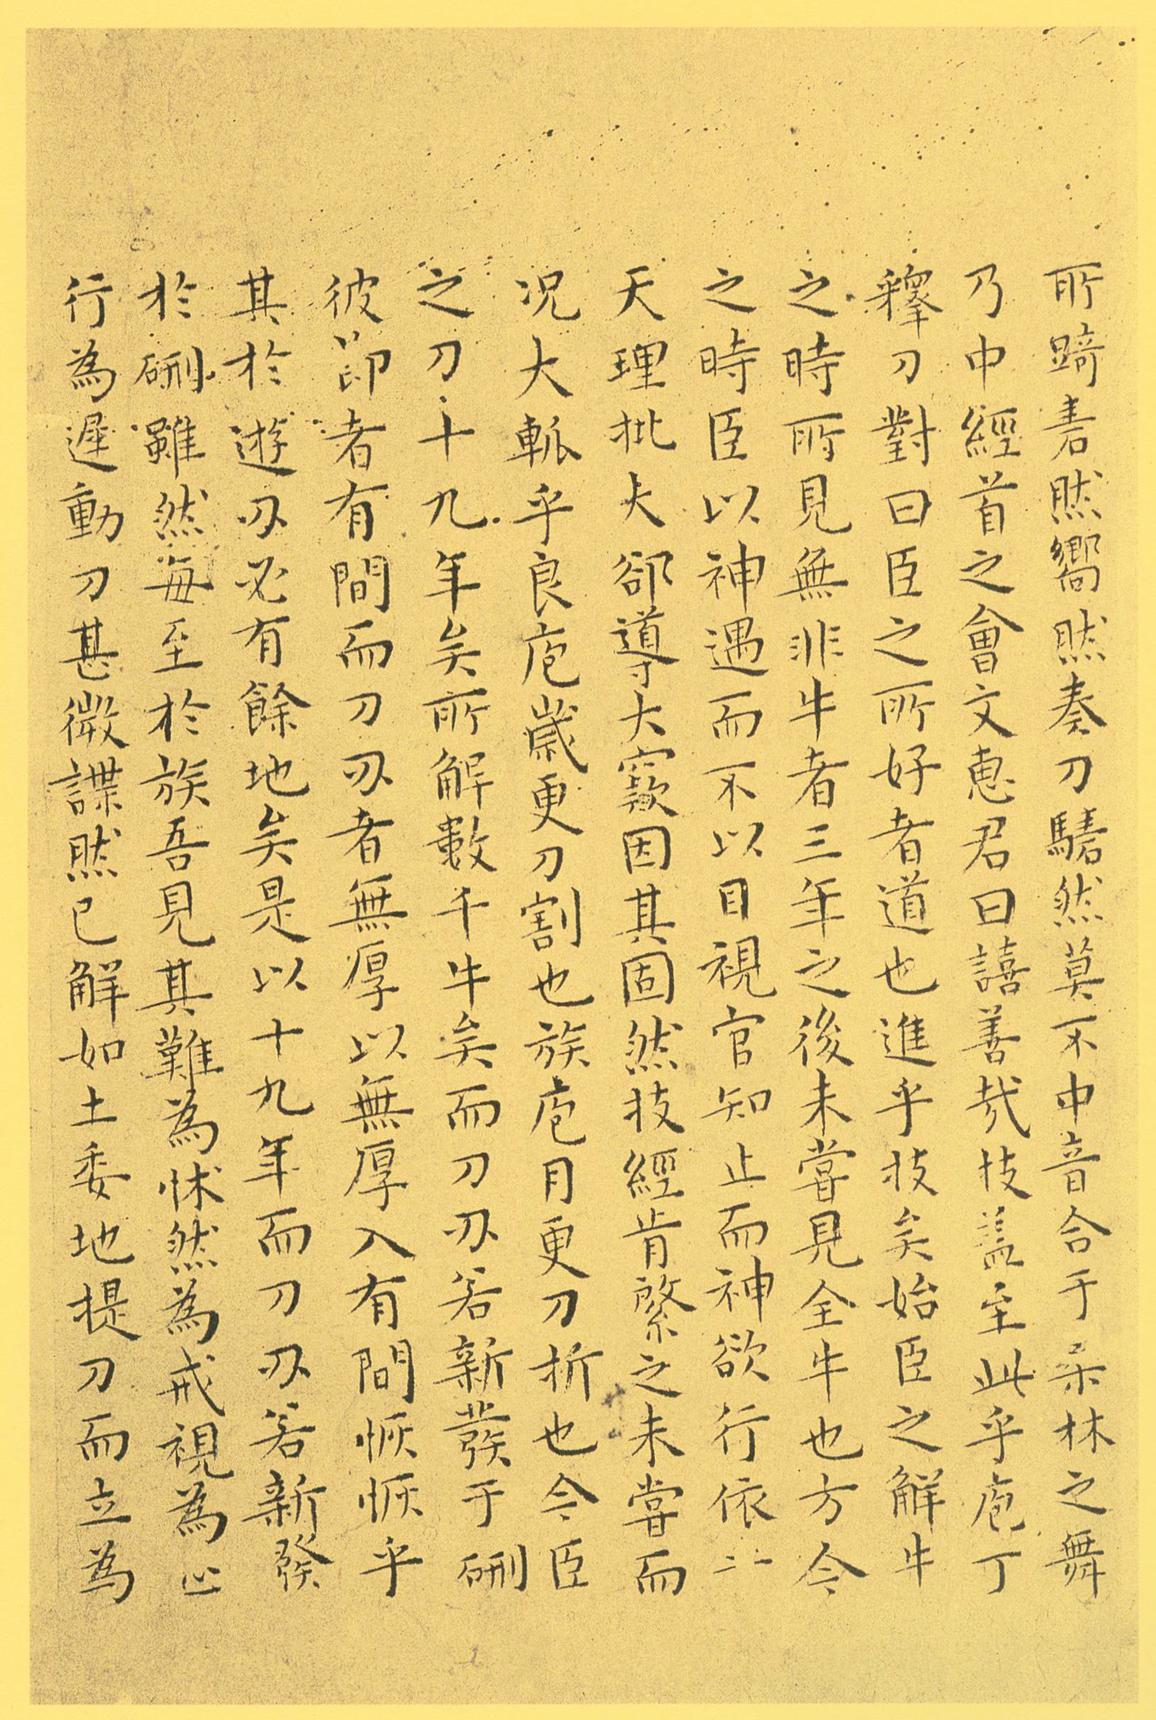 所踦砉然嚮然奏刀騞然莫不中音合于桒林之舞
乃中經首之會文惠君曰譆善哉技盖至此乎庖丁
釋刀對曰臣之所好者道也進乎技矣始臣之解牛
之時所見無非牛者三年之後未嘗見全牛也方今
之時臣以神遇而不以目視官知止而神欲行依二
天理批大郤導大窾因其固然技經肯綮之未嘗而
況大軱乎良庖歲更刀割也族庖月更刀折也今臣
之刀十九年矣所解數千牛矣而刀刃若新發于硎
彼節者有間而刀刃者無厚以無厚入有間恢恢乎
其於遊刃必有餘地矣是以十九年而刀刃若新發
於硎雖然每至於族吾見其難為怵然為戒視為止
行為遲動刀甚微謋然已解如土委地提刀而立為